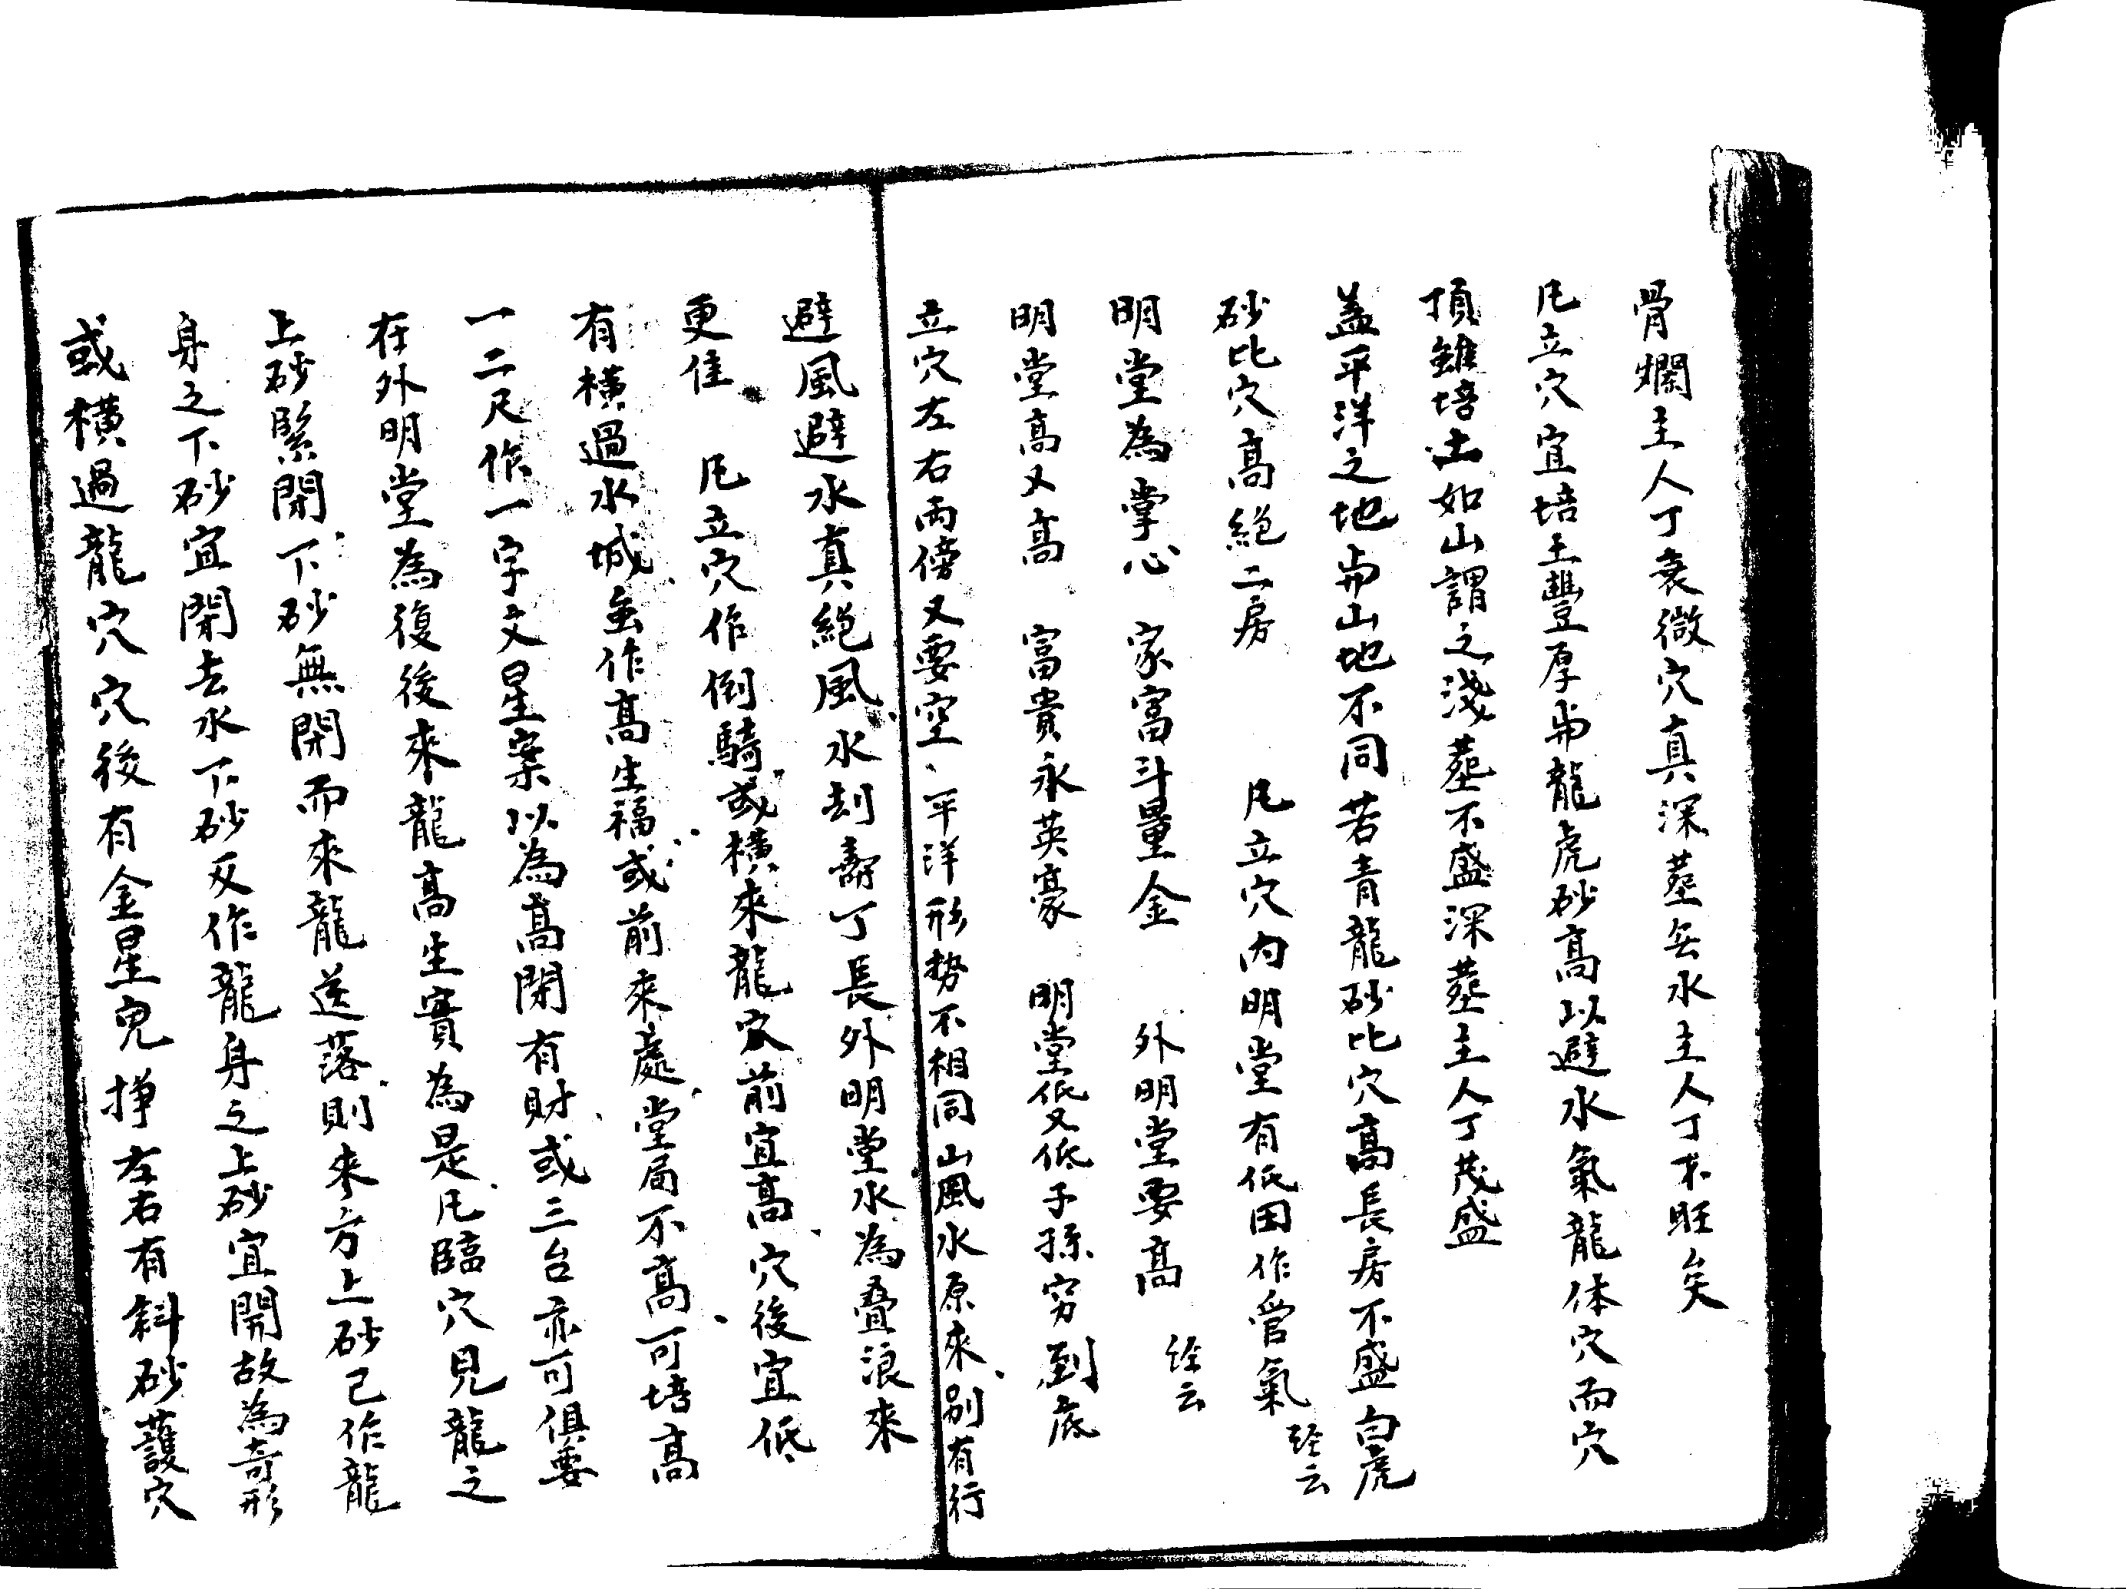 骨爛主人丁衰微穴真深塟無水主人丁不旺矣
凡立穴宜培土豐厚与龍虎砂高以避水氣龍体穴而穴
頂雖培土如山謂之淺塟不盛深塟主人丁茂盛
盖平洋之地与山地不同若青龍砂比穴高長房不盛白虎
砂比穴高絕二房 凡立穴内明堂有低田作管氣 經云
明堂為掌心 家富斗量金 外明堂要高 經云
明堂高又高 富貴永英豪 明堂低又低子孫穷到底
立穴左右両傍又要空、平洋形势不相同山風水原來別有行
避風避水真絕風水刦壽丁長外明堂水為叠浪來
更佳 凡立穴作倒騎或横來龍穴前宜高穴後宜低
有横過水城並作高生福或前來處堂局不高可培高
一二尺作一字文星案以為高閉有財或三台亦可俱要
在外明堂為復後來龍高生實為是凡臨穴見龍之
上砂緊閉下砂無閉而來龍送落則來方上砂已作龍
身之下砂宜閉去水下砂反作龍身之上砂宜開故為奇形
或横過龍穴穴後有金星皃掙左右有斜砂護穴